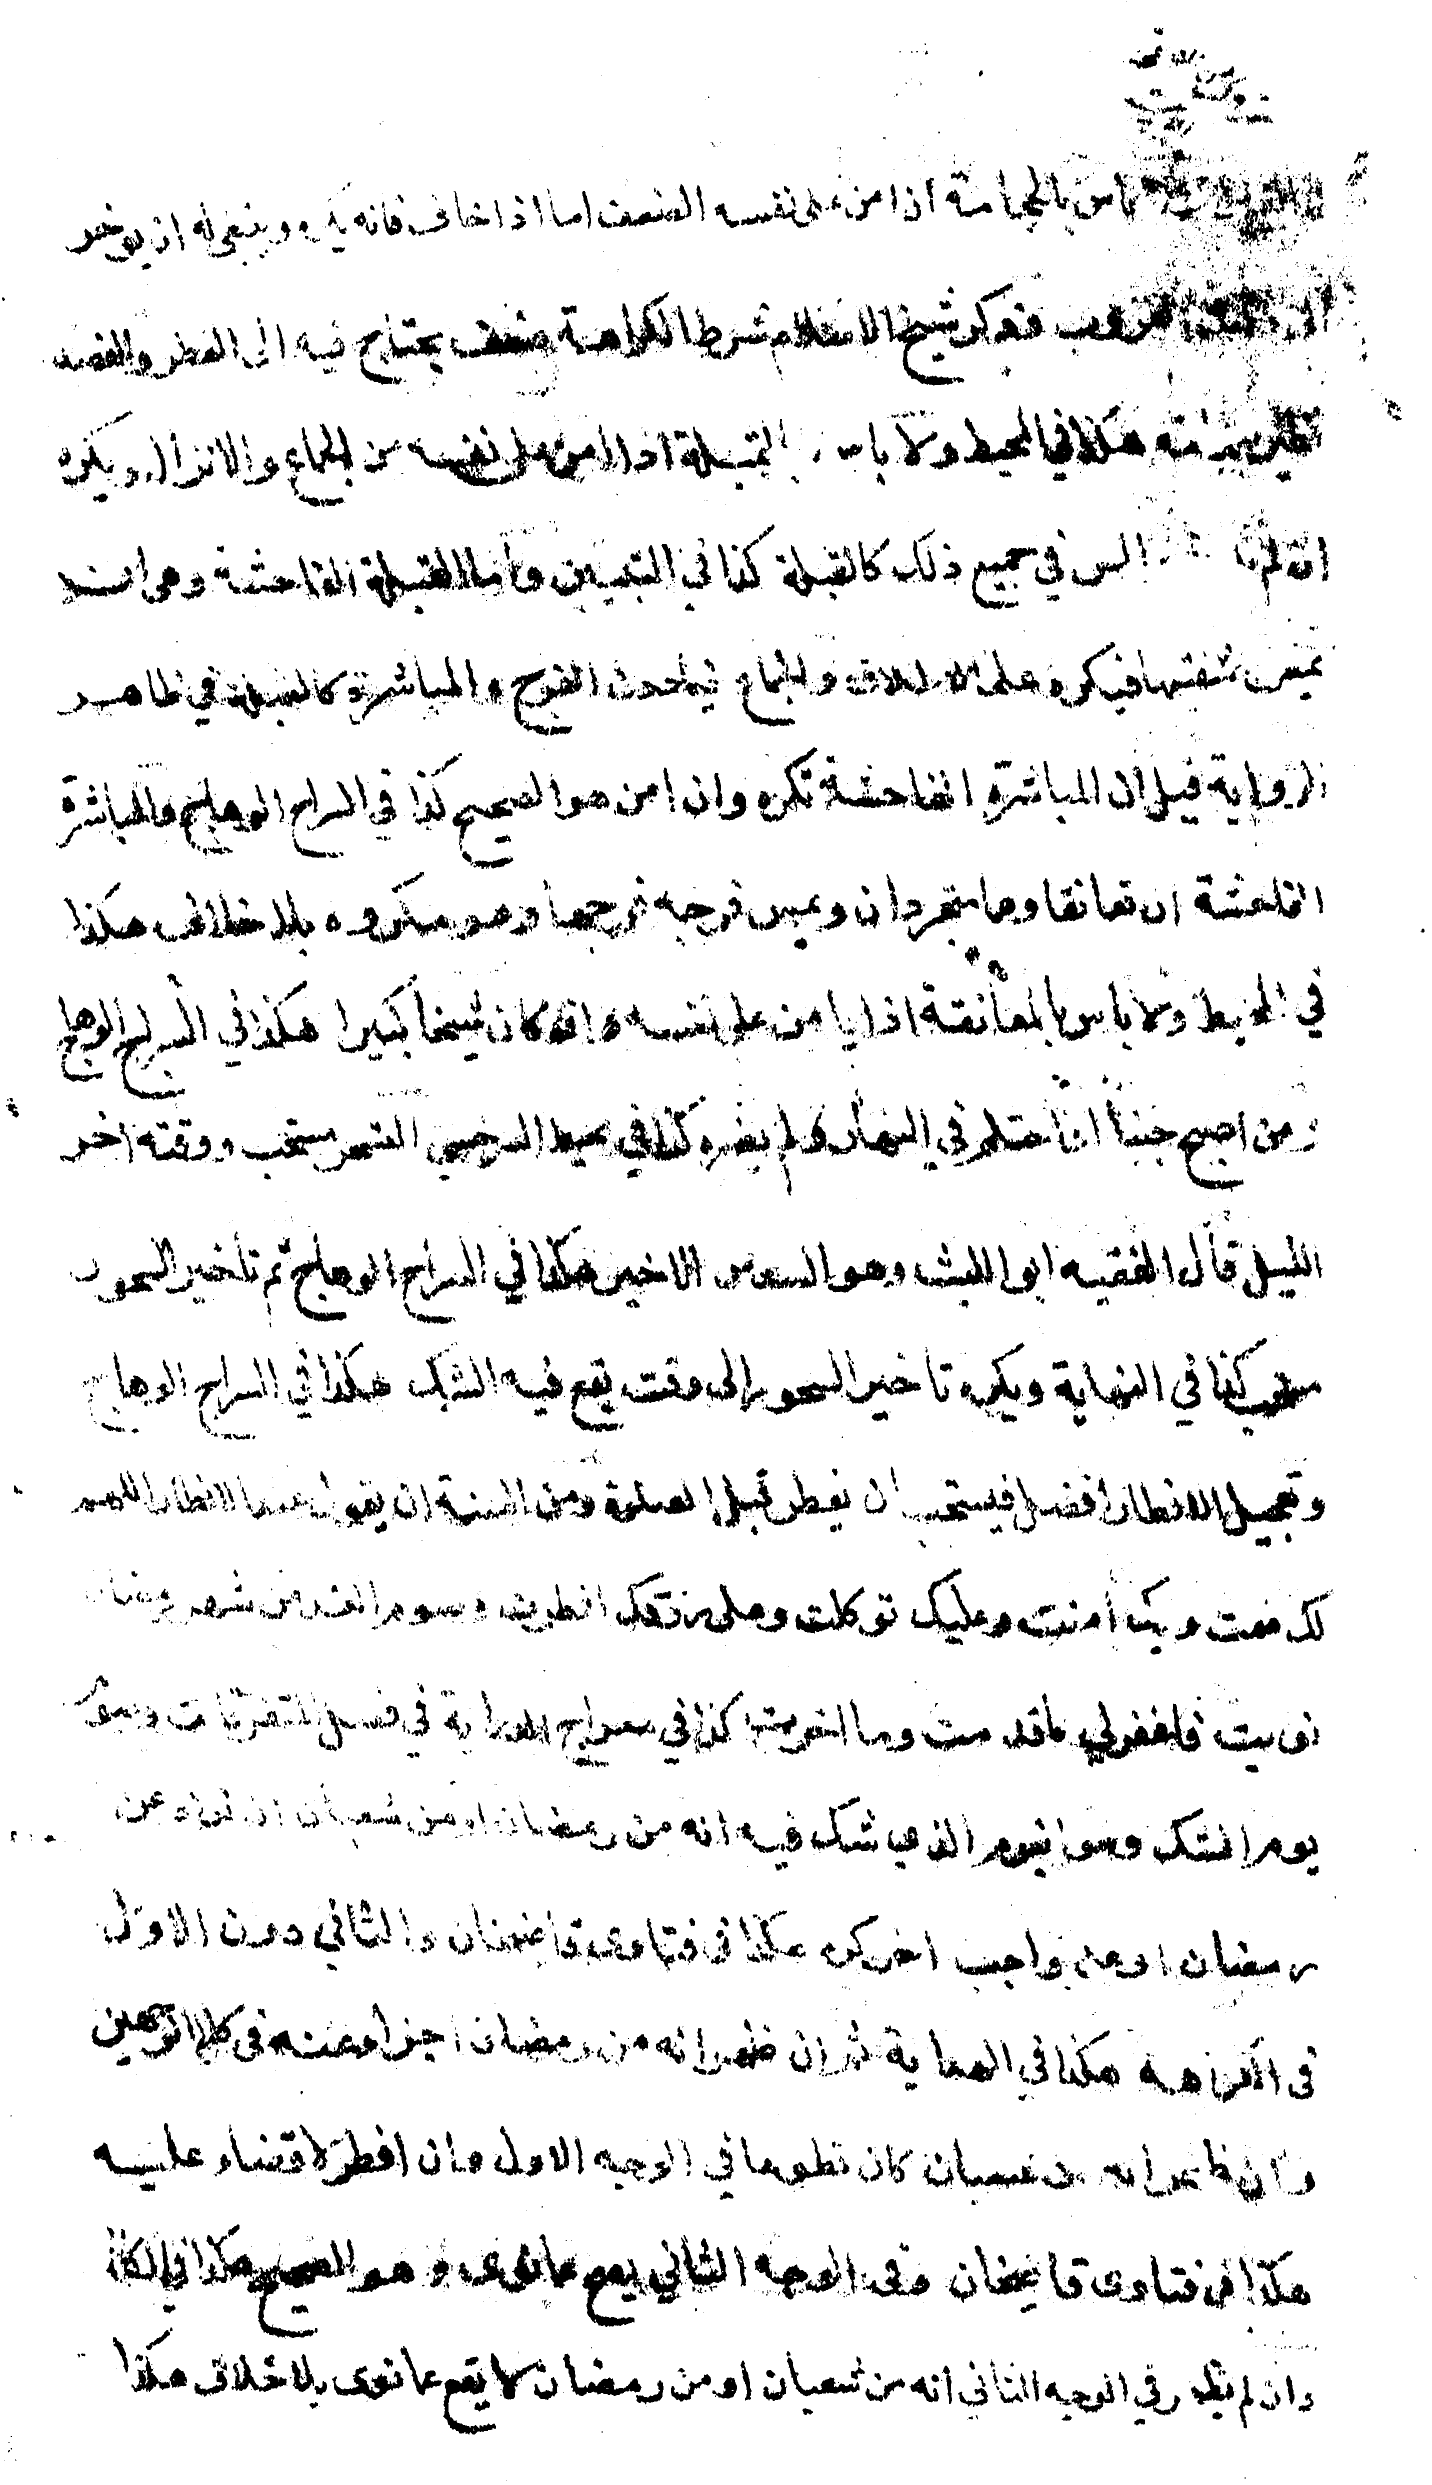 باس بالحجامة اذا امن على نفسه الضعف اما اذا خاف فانه يكره وينبغى له ان يوخر
الى وقت الغروب فذكر شيخ الاسلام شرط الكراهة ضعف يحتاج فيه الى الفطر والفصد
نظير الحجامة هكذا في المحيط ولا باس بالقبلة اذا امن على نفسه من الجماع والانزال ويكره
ان لم يامن والمس في جميع ذلك كالقبلة كذا في التبيين واما القبلة الفاحشة وهى ان
يمص شفتها فيكره على الاطلاق والجماع فيما دون الفرج والمباشرة كالقبلة في ظاهر
الرواية قيل ان المباشرة الفاحشة تكره وان امن هو الصحيح كذا في السراج الوهاج والمباشرة
الفاحشة ان تعانقا وهما متجردان ويمس فرجه فرجها وهو مكروه بلا خلاف هكذا
في المحيط ولا باس بالمعانقة اذا يامن على نفسه وان كان شيخا كبيرا هكذا في السراج الوهاج
ومن اصبح جنبا او احتلم في النهار لم يضره كذا في محيط السرخسي التسحر مستحب ووقته اخر
الليل قال الفقيه ابو الليث وهو السدس الاخير هكذا في السراج الوهاج ثم تاخير السحور
مستحب كذا في النهاية ويكره تاخير السحور الى وقت يقع فيه الشك هكذا في السراج الوهاج
وتعجيل الافطار افضل فيستحب ان يفطر قبل الصلوة ومن السنة ان يقول عند الافطار اللهم
لك صمت وبك امنت وعليك توكلت وعلى رزقك افطرت وصوم الغد من شهر رمضان
نويت فاغفرلي ما قدمت وما اخرت كذا في معراج الدراية في فصل المتفرقات وصوم
يوم الشك وهو اليوم الذي شك فيه انه من رمضان او من شعبان ان نواه عن
رمضان او عن واجب اخر كره هكذا في فتاوى قاضيخان والثاني دون الاول
في الكراهة هكذا في الهداية ثم ان ظهر انه من رمضان اجزاه عنه في كلا الوجهين
وان ظهر انه من شعبان كان تطوعا في الوجه الاول وان افطر لا قضاء عليه
هكذا في فتاوى قاضيخان وفى الوجه الثاني يقع عما نوى وهو الصحيح هكذا في الكافي
وان لم يظهر في الوجه الثاني انه من شعبان او من رمضان لا يقع عما نوى بلا خلاف هكذا